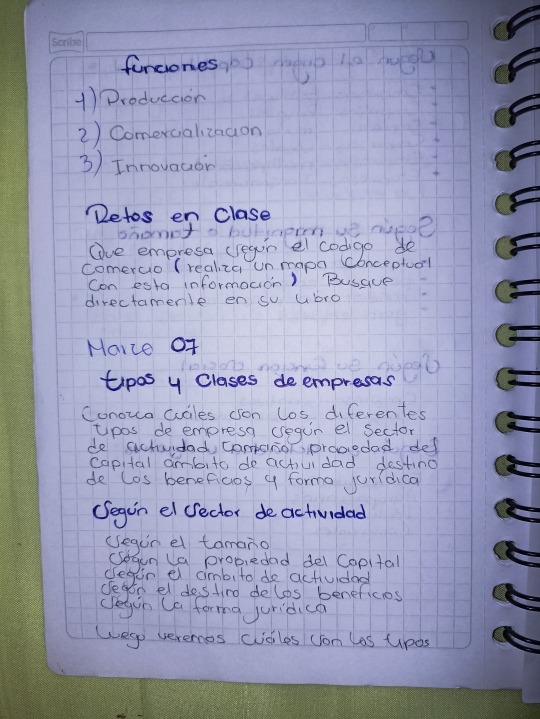 Scribe
funciones
1) Producción
2) Comercialización
3) Innovación
Retos en Clase
Que empresa según el codigo de
Comercio (realiza un mapa Conceptual
Con esta información) Busque
directamente en su libro
Marzo 07
tipos y Clases de empresas
Conozca cuáles son los diferentes
tipos de empresa según el Sector
de actividad, tamaño, propiedad del
Capital ámbito de actividad destino
de los beneficios y forma jurídica
Según el Sector de actividad
Según el tamaño
Según la propiedad del Capital
Según el ambito de actividad
Según el destino de los beneficios
Según la forma jurídica
luego veremos cuáles son los tipos